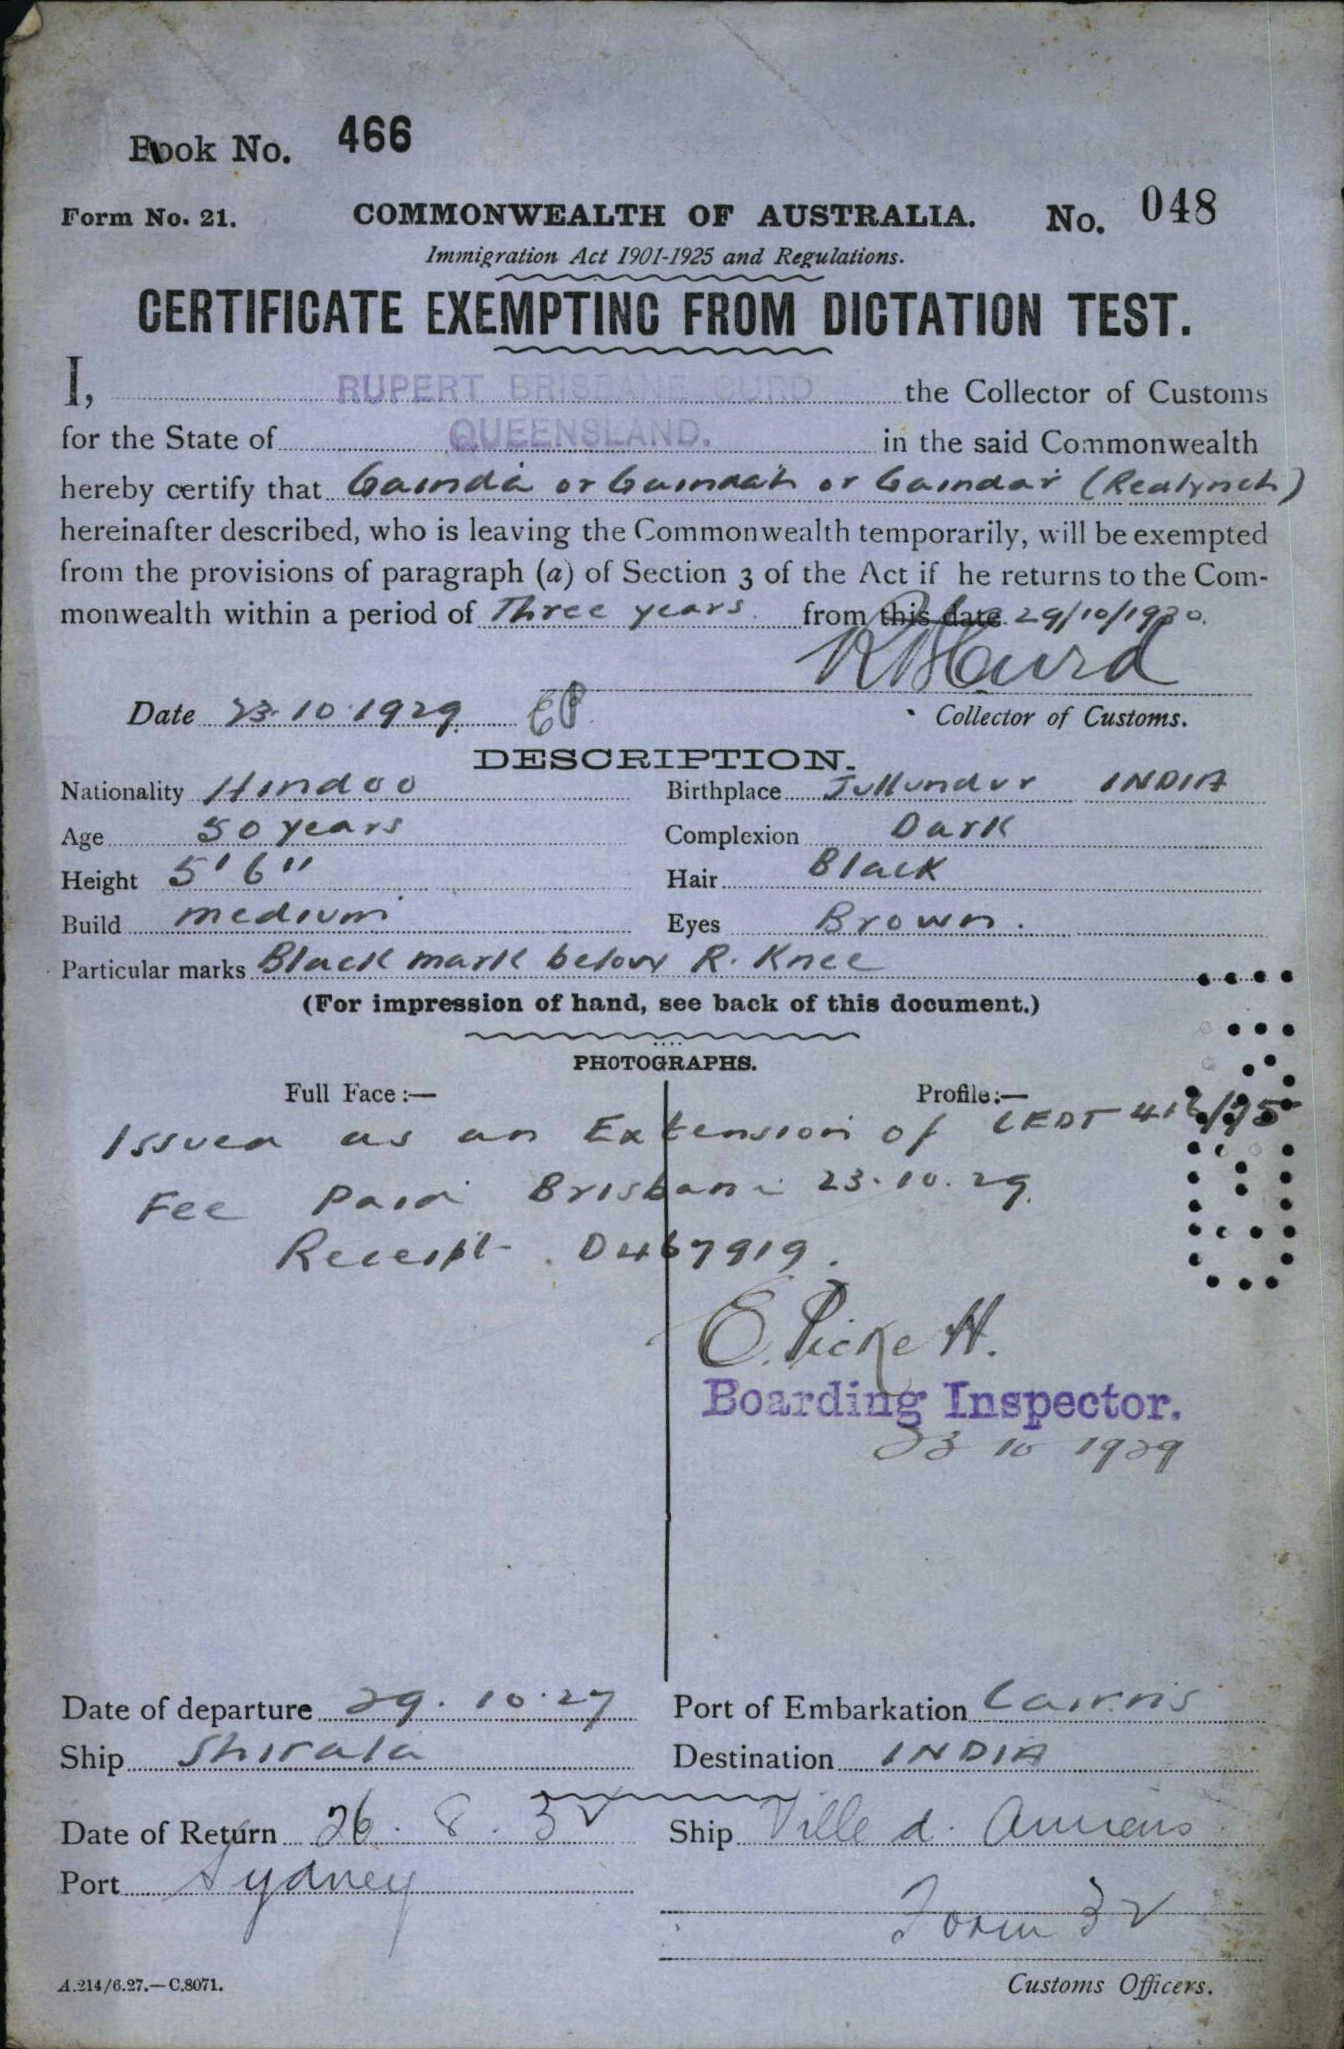 Book No. 466
Form No. 21. COMMONWEALTH OF AUSTRALIA. No. 048
Immigration Act 1901-1925 and Regulations.
CERTIFICATE EXEMPTING FROM DICTATION TEST.
I, RUPERT BRISBANE CURD the Collector of Customs
for the State of QUEENSLAND. in the said Commonwealth
hereby certify that Gainda or Gaindah or Gaindar (Redlynch)
hereinafter described, who is leaving the Commonwealth temporarily, will be exempted
from the provisions of paragraph (a) of Section 3 of the Act if he returns to the Com-
monwealth within a period of Three years from this date 29/10/1930.
RBCurd
Date 23.10.1929 EP Collector of Customs.
DESCRIPTION.
Nationality Hindoo Birthplace Jullundur INDIA
Age 50 years Complexion Dark
Height 5' 6" Hair Black
Build medium Eyes Brown.
Particular marks Black mark below R. Knee
(For impression of hand, see back of this document.)
PHOTOGRAPHS.
Full Face:— Profile:—
Issued as an Extension of CEDT
Fee Paid Brisbane 23.10.29.
Receipt D467919.
E. Pickett.
Boarding Inspector.
23 10 1929
Date of departure 29.10.27 Port of Embarkation Cairns
Ship Shirala Destination INDIA
Date of Return 26.8.32 Ship Ville d. Amiens
Port Sydney
Form 32
A.214/6.27.—C.8071. Customs Officers.